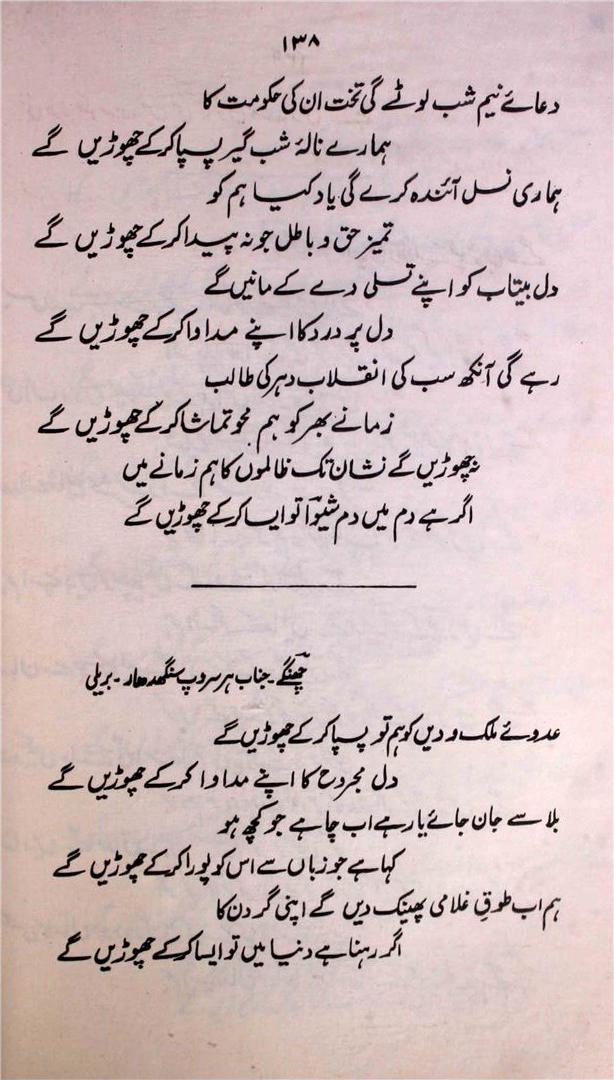 ۱۳۸
دعائے نیم شب لوٹے گی تخت ان کی حکومت کا
ہمارے نالۂ شب گیر پسپا کر کے چھوڑیں گے
ہماری نسل آئندہ کرے گی یاد کیا ہم کو
تمیز حق و باطل جو نہ پیدا کر کے چھوڑیں گے
دل بیتاب کو اپنے تسلی دے کے مانیں گے
دل پر درد کا اپنے مداوا کر کے چھوڑیں گے
رہے گی آنکھ سب کی انقلاب دہر کی طالب
زمانے بھر کو ہم محو تماشا کر کے چھوڑیں گے
نہ چھوڑیں گے نشاں تک ظالموں کا ہم زمانے میں
اگر ہے دم میں دم شیوا تو ایسا کر کے چھوڑیں گے
چھنگے ۔ جناب ہر سروپ سنگھ دھار ۔ بریلی
عدوئے ملک و دیں کو ہم تو پسپا کر کے چھوڑیں گے
دل مجروح کا اپنے مداوا کر کے چھوڑیں گے
بلا سے جان جائے یا رہے اب چاہے جو کچھ ہو
کہا ہے جو زباں سے اس کو پورا کر کے چھوڑیں گے
ہم اب طوقِ غلامی پھینک دیں گے اپنی گردن کا
اگر رہنا ہے دنیا میں تو ایسا کر کے چھوڑیں گے